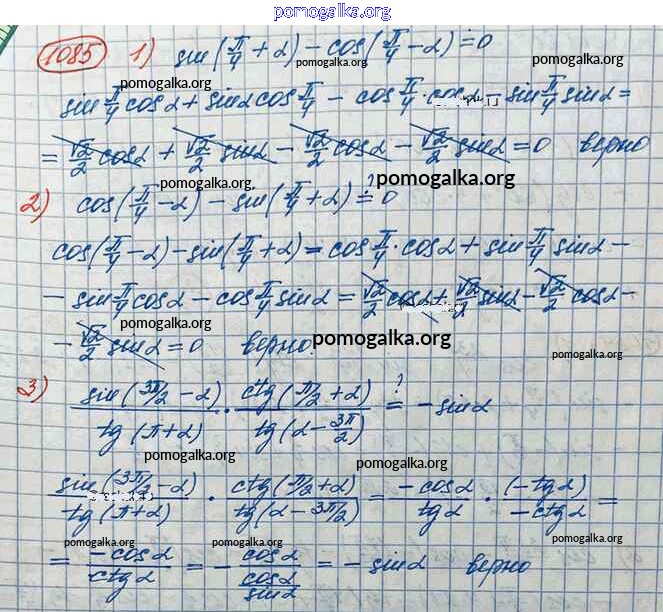 pomogalka.org
1085 1) sin(π/4 + α) - cos(π/4 - α) = 0
pomogalka.org
pomogalka.org
pomogalka.org
sin π/4 cos α + sin α cos π/4 - cos π/4 · cos α - sin π/4 sin α =
pomogalka.org
= √2/2 cos α + √2/2 sin α - √2/2 cos α - √2/2 sin α = 0 верно
pomogalka.org
pomogalka.org
2) cos(π/4 - α) - sin(π/4 + α) ?= 0
cos(π/4 - α) - sin(π/4 + α) = cos π/4 · cos α + sin π/4 sin α -
- sin π/4 cos α - cos π/4 sin α = √2/2 cos α + √2/2 sin α - √2/2 cos α -
pomogalka.org
- √2/2 sin α = 0 верно.
pomogalka.org
pomogalka.org
3) sin(3π/2 - α)/tg(π + α) · ctg(π/2 + α)/tg(α - 3π/2) ?= - sin α
pomogalka.org
pomogalka.org
sin(3π/2 - α)/tg(π + α) · ctg(π/2 + α)/tg(α - 3π/2) = -cos α/tg α · (-tg α)/-ctg α =
pomogalka.org
pomogalka.org
pomogalka.org
pomogalka.org
= -cos α/ctg α = - cos α/(cos α/sin α) = - sin α верно